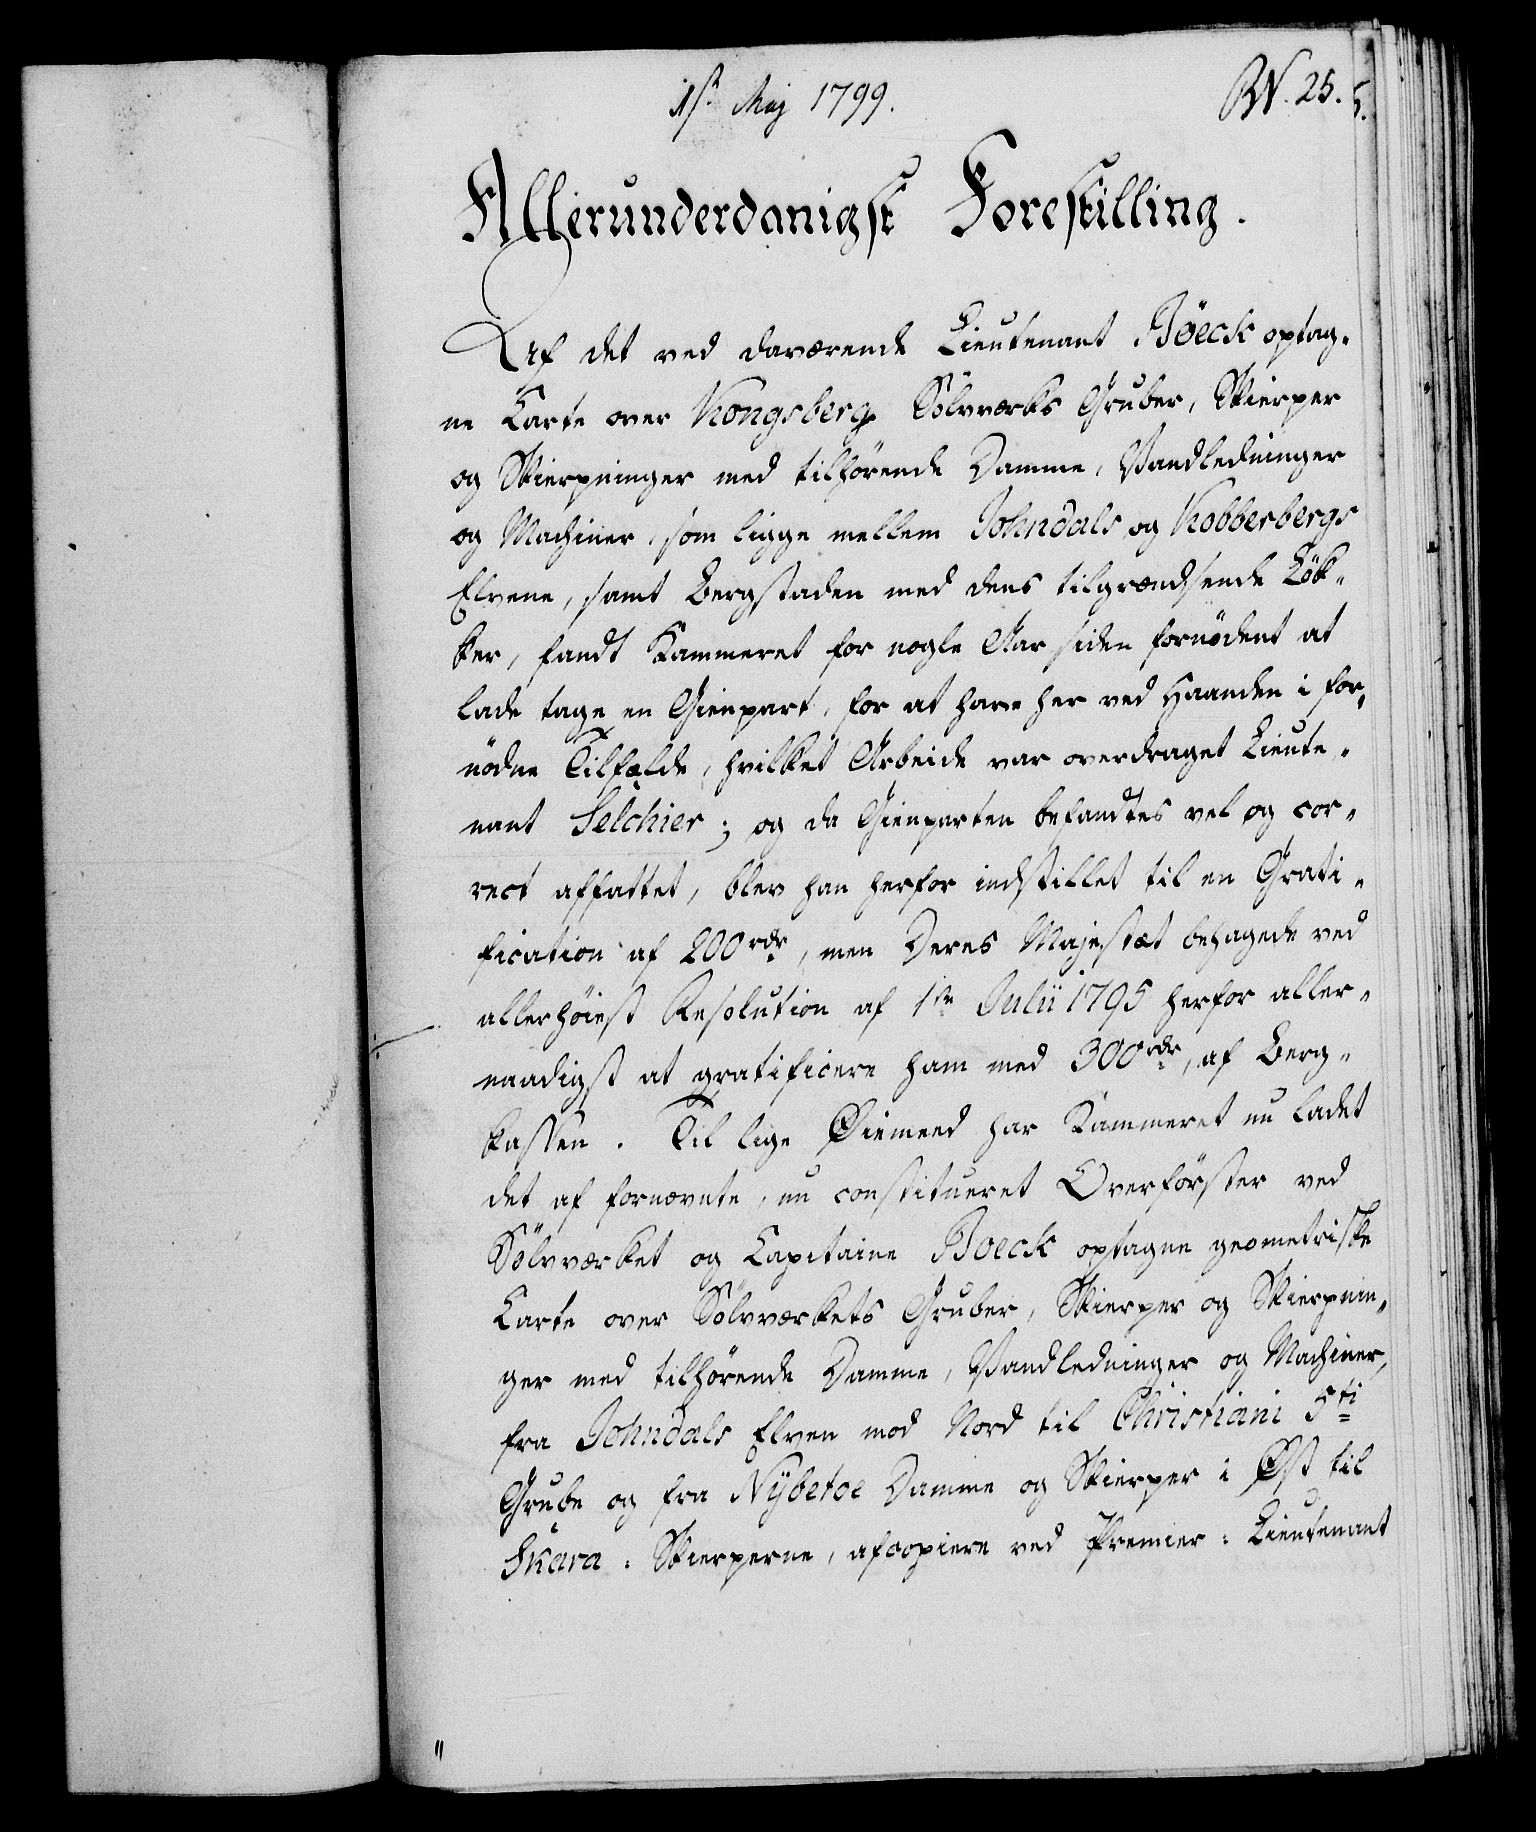 1st Maj 1799.
RN. 25.
Allerunderdanigst Forestilling.
Af det ved daværende Lieutenant Böeck optag-
ne Carte over Kongsberg Sölvværks Gruber, Skierper
og Skierpninger med tilhörende Damme, Vandledninger
og Machiner, som ligge mellem Johndals og Kobberbergs
Elvene, samt Bergstaden med dens tilgrændsende Lök-
ker, fandt Kammeret for nogle Aar siden fornödent at
lade tage en Gienpart, for at have her ved Haanden i for-
nödne Tilfælde, hvilket Arbeide var overdraget Lieute-
nant Selchier; og da Gienparten befandtes vel og cor-
rect affattet, blev han herfor indstillet til en Grati-
fication af 200 rdr, men Deres Majestæt behagede ved
allerhöiest Resolution af 1ste Julii 1795 herfor aller-
naadigst at gratificere ham med 300 rdr, af Berg-
kassen. Til lige Øiemeed har Kammeret nu ladet
det af fornævnte, nu constitueret Overförster ved
Sölvværket og Capitaine Boeck optagne geometriske
Carte over Sölvværkets Gruber, Skierper og Skierpnin-
ger med tilhörende Damme, Vandledninger og Machiner,
fra Johndals Elven mod Nord til Christiani 5ti
Grube og fra Nÿbetoe Damme og Skierper i Øst til
Skara-Skierperne, afcopiere ved Premier-Lieutenant